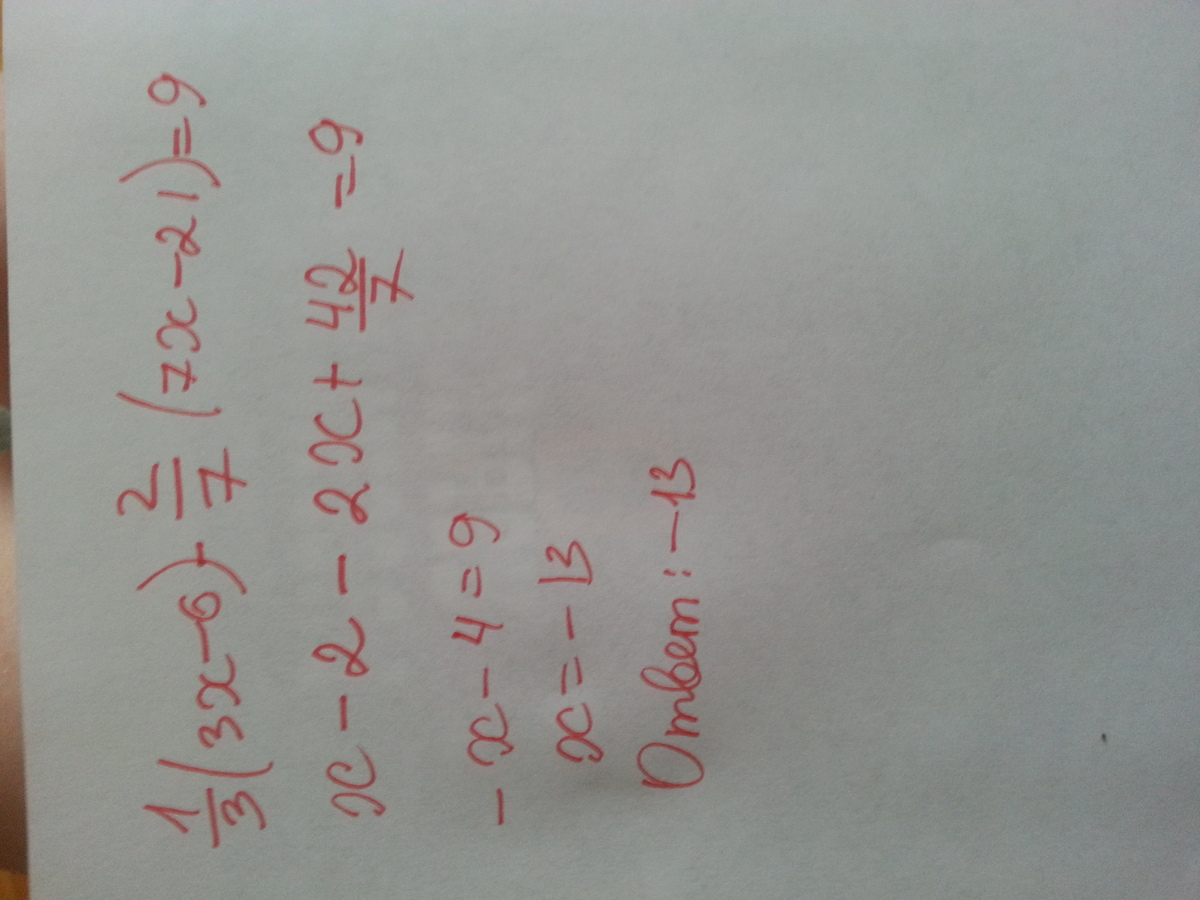 1/3 (3x-6) - 2/7 (7x-21)=9
x-2-2x+ 42/7 =9
-x-4=9
x=-13
Ответ: -13